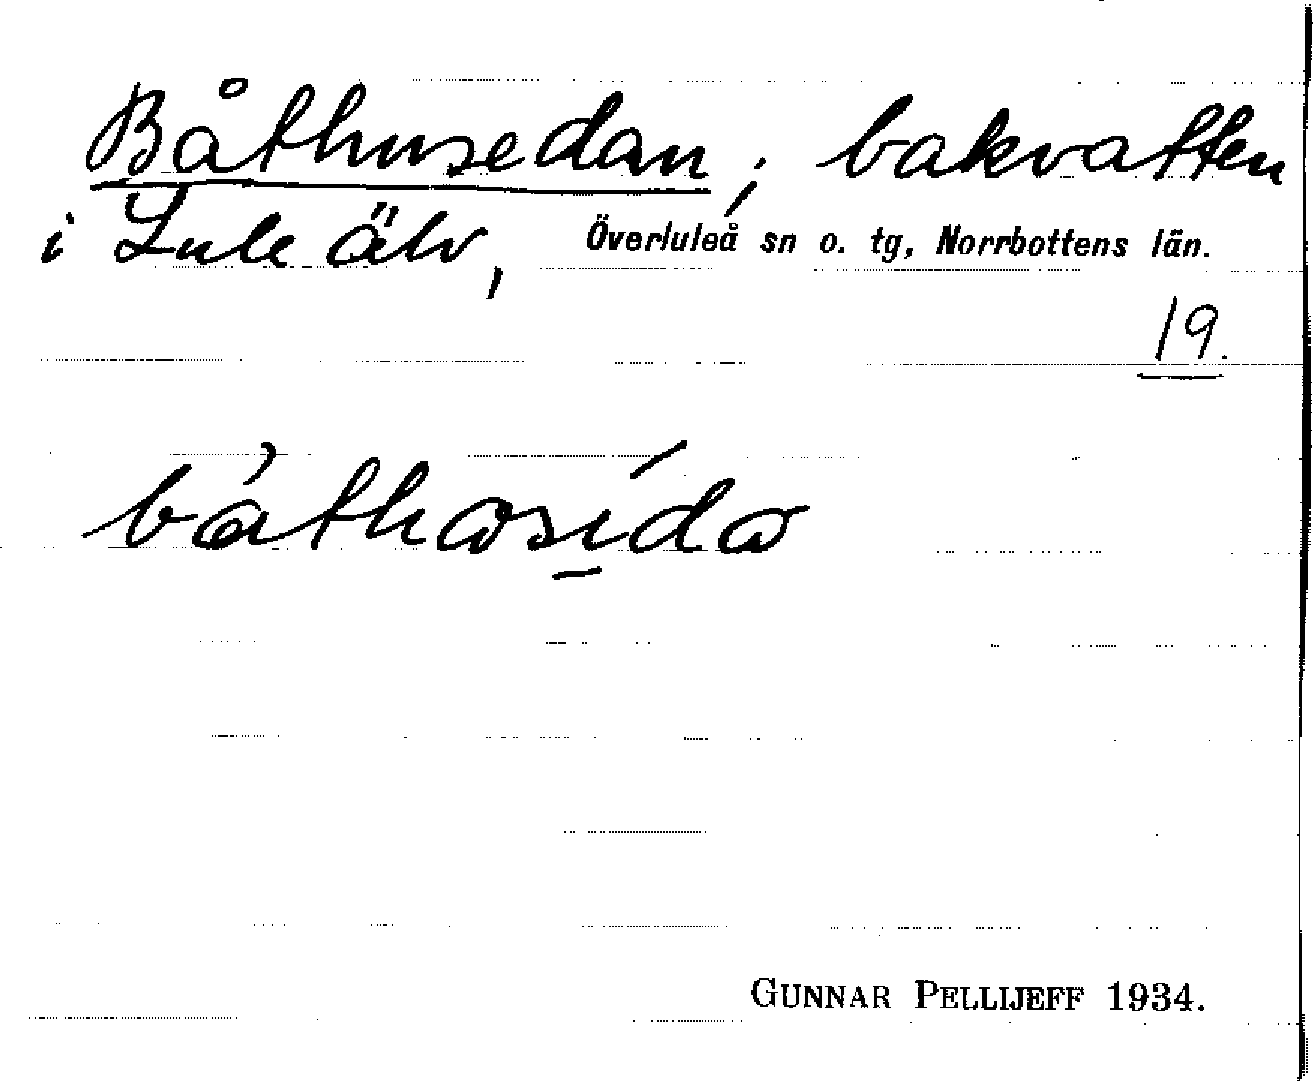 Båthusedan; bakvatten
i Lule älv, Överluleå sn o. tg, Norrbottens län.
19.
båthɷsida
GUNNAR PELLIJEFF 1934.